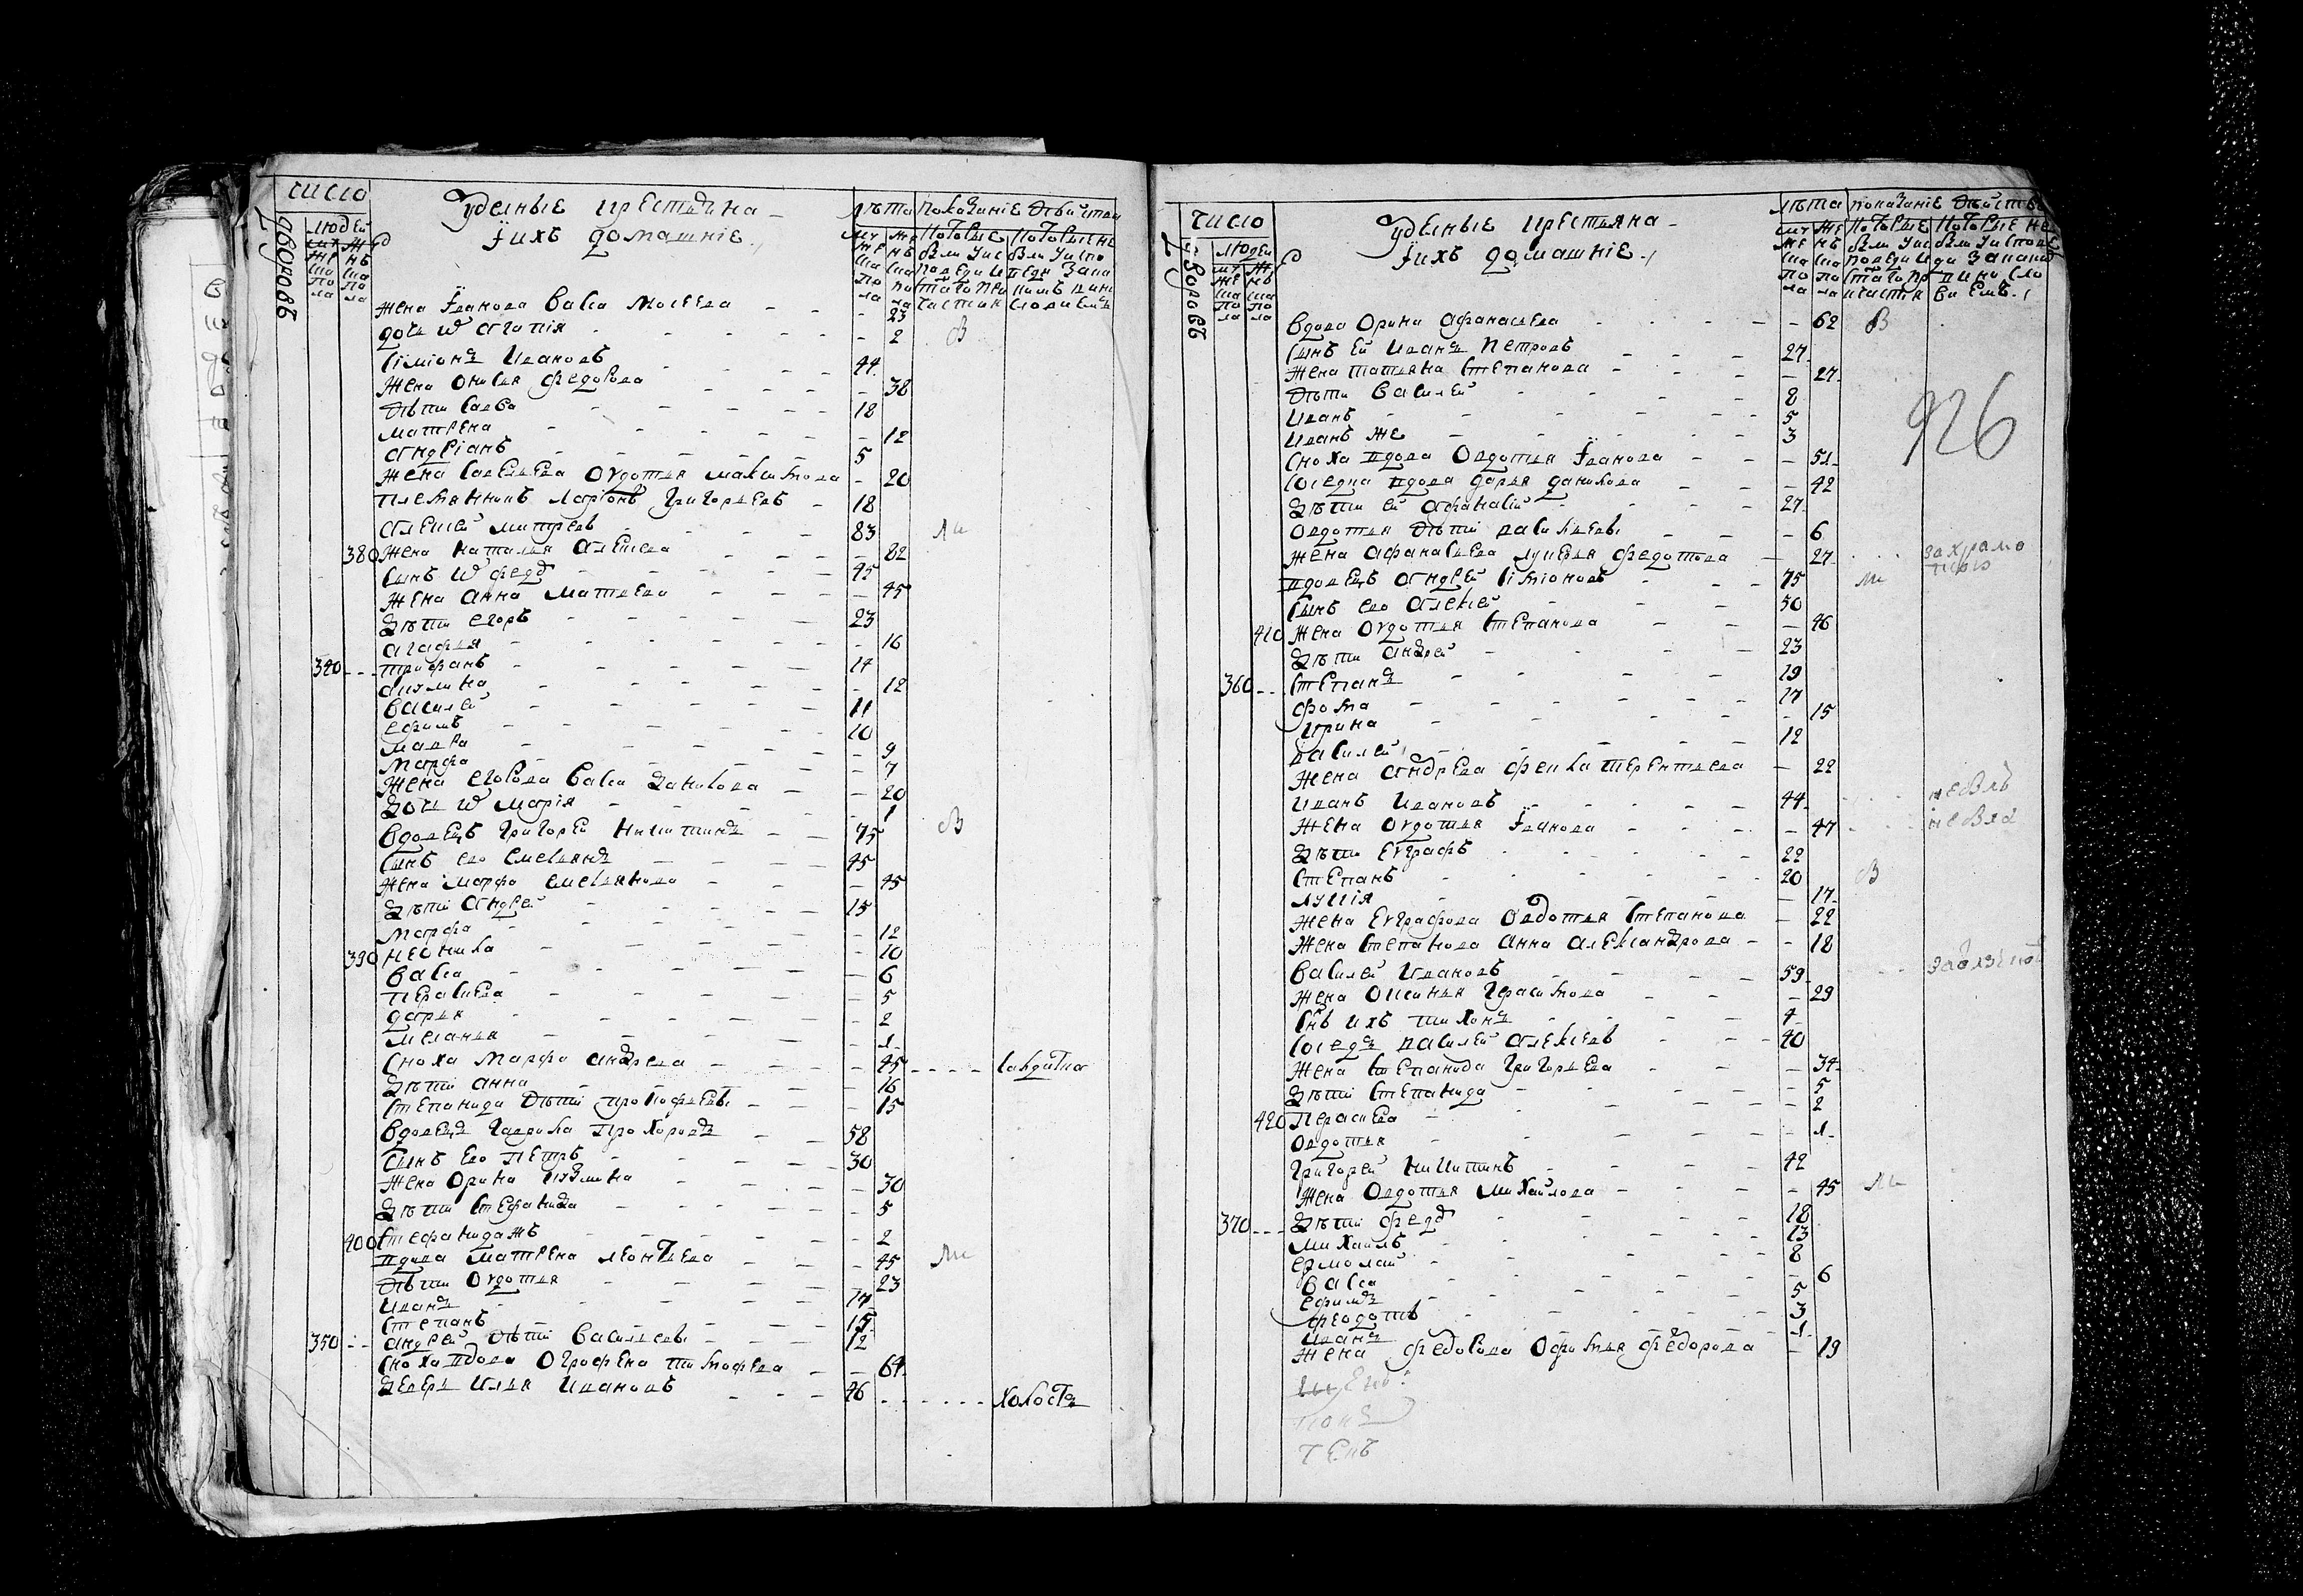 число
Удельные крестьяна
Їихъ домашніе
лѣта показаніе действи
дворовъ
людей
Жена Їванова Васса Мосеева - 23
дочь ѿ Агапія - 2 В
Сіміонъ Ивановъ 44
Жена Онисья Федорова - 38
Дѣти Савва 18
Матрена - 12
Андреіанъ 5
Жена Савельева Овдотья Максимова - 20
племянникъ Ларіонъ Григорьевъ 18
Алексей 83
380 Жена Наталья Алексеева - 82
Сынъ ѿ Федр 45
Жена Анна Матвеева - 45
Дѣти Егоръ 23
Агафья - 16
340 Трифанъ 14
Акулина - 12
Василей 11
Ефимъ 10
Мавра - 9
Марфа - 7
Жена Егорова Васса Данилова - 20
Дочь ѿ Марія - 1
Вдовецъ Григорей Никитинъ 75 В
Сынъ ево Емельянъ 45
Жена Марфа Емельянова - 45
Дѣти Андрей 15
Марфа - 12
390 Неонила - 10
Васса - 6
Перасковья - 5
Дарья - 2
Меланья - 1
Сноха Марфа Андреева - 45
Дѣти Анна - 16
Степанида Дѣти Прокофьевы - 15
Вдовецъ Гаврила Прохоровъ 58
Сынъ Ево Петръ 30
Жена Орина Кузмина - 30
Дѣти Стефанида - 5
400 Стефанида жъ - 2
Вдова Матрена Леонтьева - 45
Дѣти Овдотья - 23
Иванъ 17
Степанъ 15
350 Андрей Дѣти Васильевы 12
Сноха вдова Ографена Тимофеева - 64
Деверь Илья Ивановъ 46 холостъ
число
Удельные крестьяна
Їихъ домашніе
лѣта показаніе действи
дворовъ
людей
Вдова Орина Афанасьева - 62 В
Сынъ ей Иванъ Петровъ 27
Жена Татьяна Степанова - 27
Дѣти Василей 8
Иванъ 5
Иванъ же 3
926
Сноха вдова Овдотья Їванова - 51
Соседка вдова Дарья Данилова - 42
Дѣти ей Афанасій 27
Овдотья Дѣти Васильевы - 6
Жена Афанасьева Лукерья Федотова - 27
Вдовецъ Андрей Сіміоновъ 75
Сынъ ево Алексей 50
410 Жена Овдотья Степанова - 46
Дѣти Андрей 23
360 Степанъ 19
Фома 17
Ирина - 15
Василей 12
Жена Андреева Фекла Терентьева - 22
Иванъ Ивановъ 44
Жена Овдотья Їванова - 47
Дѣти Евграфъ 22
Степанъ 20 В
Лукія - 17
Жена Евграфова Овдотья Степанова - 22
Жена Степанова Анна Александрова - 18
Василей Ивановъ 59
Жена Оксинья Герасимова - 29
Снъ ихъ Тихонъ 4
Соседъ Василей Алексеевъ 40
Жена Степанида Григорьева - 34
Дѣти Степанида - 5
420 Пераскева - 2
Овдотья - 1
Григорей Никитинъ 42
Жена Овдотья Михайлова - 45
370 Дѣти Федр 18
Михайлъ 13
Ермолай 8
Васса - 6
Ефимъ 5
Феодотъ 3
Иванъ 1
Жена Федорова Офимья Федорова - 19